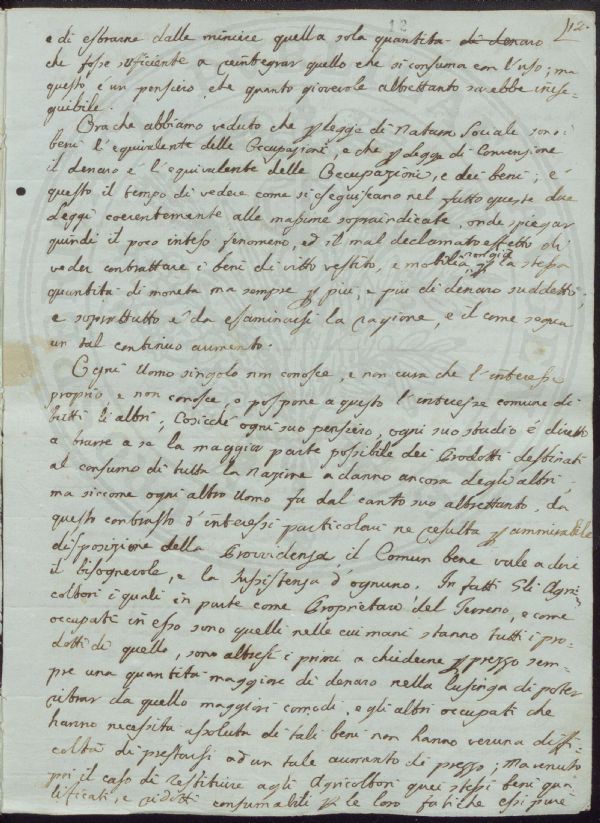 12 12.
e di estrarne dalle miniere quella sola quantità di denaro
che fosse suficiente a reintegrar quello che si consuma con l'uso; ma
questo é un pensiero, che quanto giovevole altrettanto sarebbe inese-
guibile.
Ora che abbiamo veduto che p legge di Natura Sociale sono i
beni l'equivalente delle Occupazioni, e che p Legge di Convensione
il denaro é l'equivalente delle Occupazioni, e dei beni; é
questo il tempo di vedere come si eseguiscano nel fatto queste due
Leggi coerentemente alle massime sopraindicate, onde spiegar
quindi il poco inteso fenomeno, ed il mal declamato effetto di
veder contrattare i beni di vitto vestito, e mobilia p la stessa
quantità di moneta ma sempre p più, e più di denaro suddetto;
e soprattutto é da esaminarsi la ragione, e il come segua
un tal continuo aumento.
Ogni Uomo singolo non conosce, e non cura che l'interesse
proprio, e non conosce, o pospone a questo l'interesse comune di
tutti li altri; Cosicché ogni suo pensiero, ogni suo studio é diretto
a trarre a se la maggior parte possibile dei Prodotti destinati
al consumo di tutta la Nazione a danno ancora degli altri;
ma siccome ogni altro Uomo fa dal canto suo altrettanto, da
questo contrasto d'interessi particolari ne resulta p ammirabile
disposizione della Provvidenza il Comun bene vale a dire
il bisognevole, e la Susistenza d'ognuno. In fatti Gli Agri-
coltori i quali in parte come Proprietari del Terreno, e come
occupati in esso sono quelli nelle cui mani stanno tutti i pro-
dotti di quello, sono altresi i primi a chiederne p prezzo sem-
pre una quantità maggiore di denaro nella lusinga di poter
ritrar da quello maggiori comodi, e gli altri occupati che
hanno necessità assoluta di tali beni non hanno veruna diffi-
coltà di prestarsi ad un tale aumento di prezzo; ma venuto
poi il caso di restituire agli Agricoltori quei stessi beni qua-
lificati, e ridotti consumabili p le loro fatiche essi pure